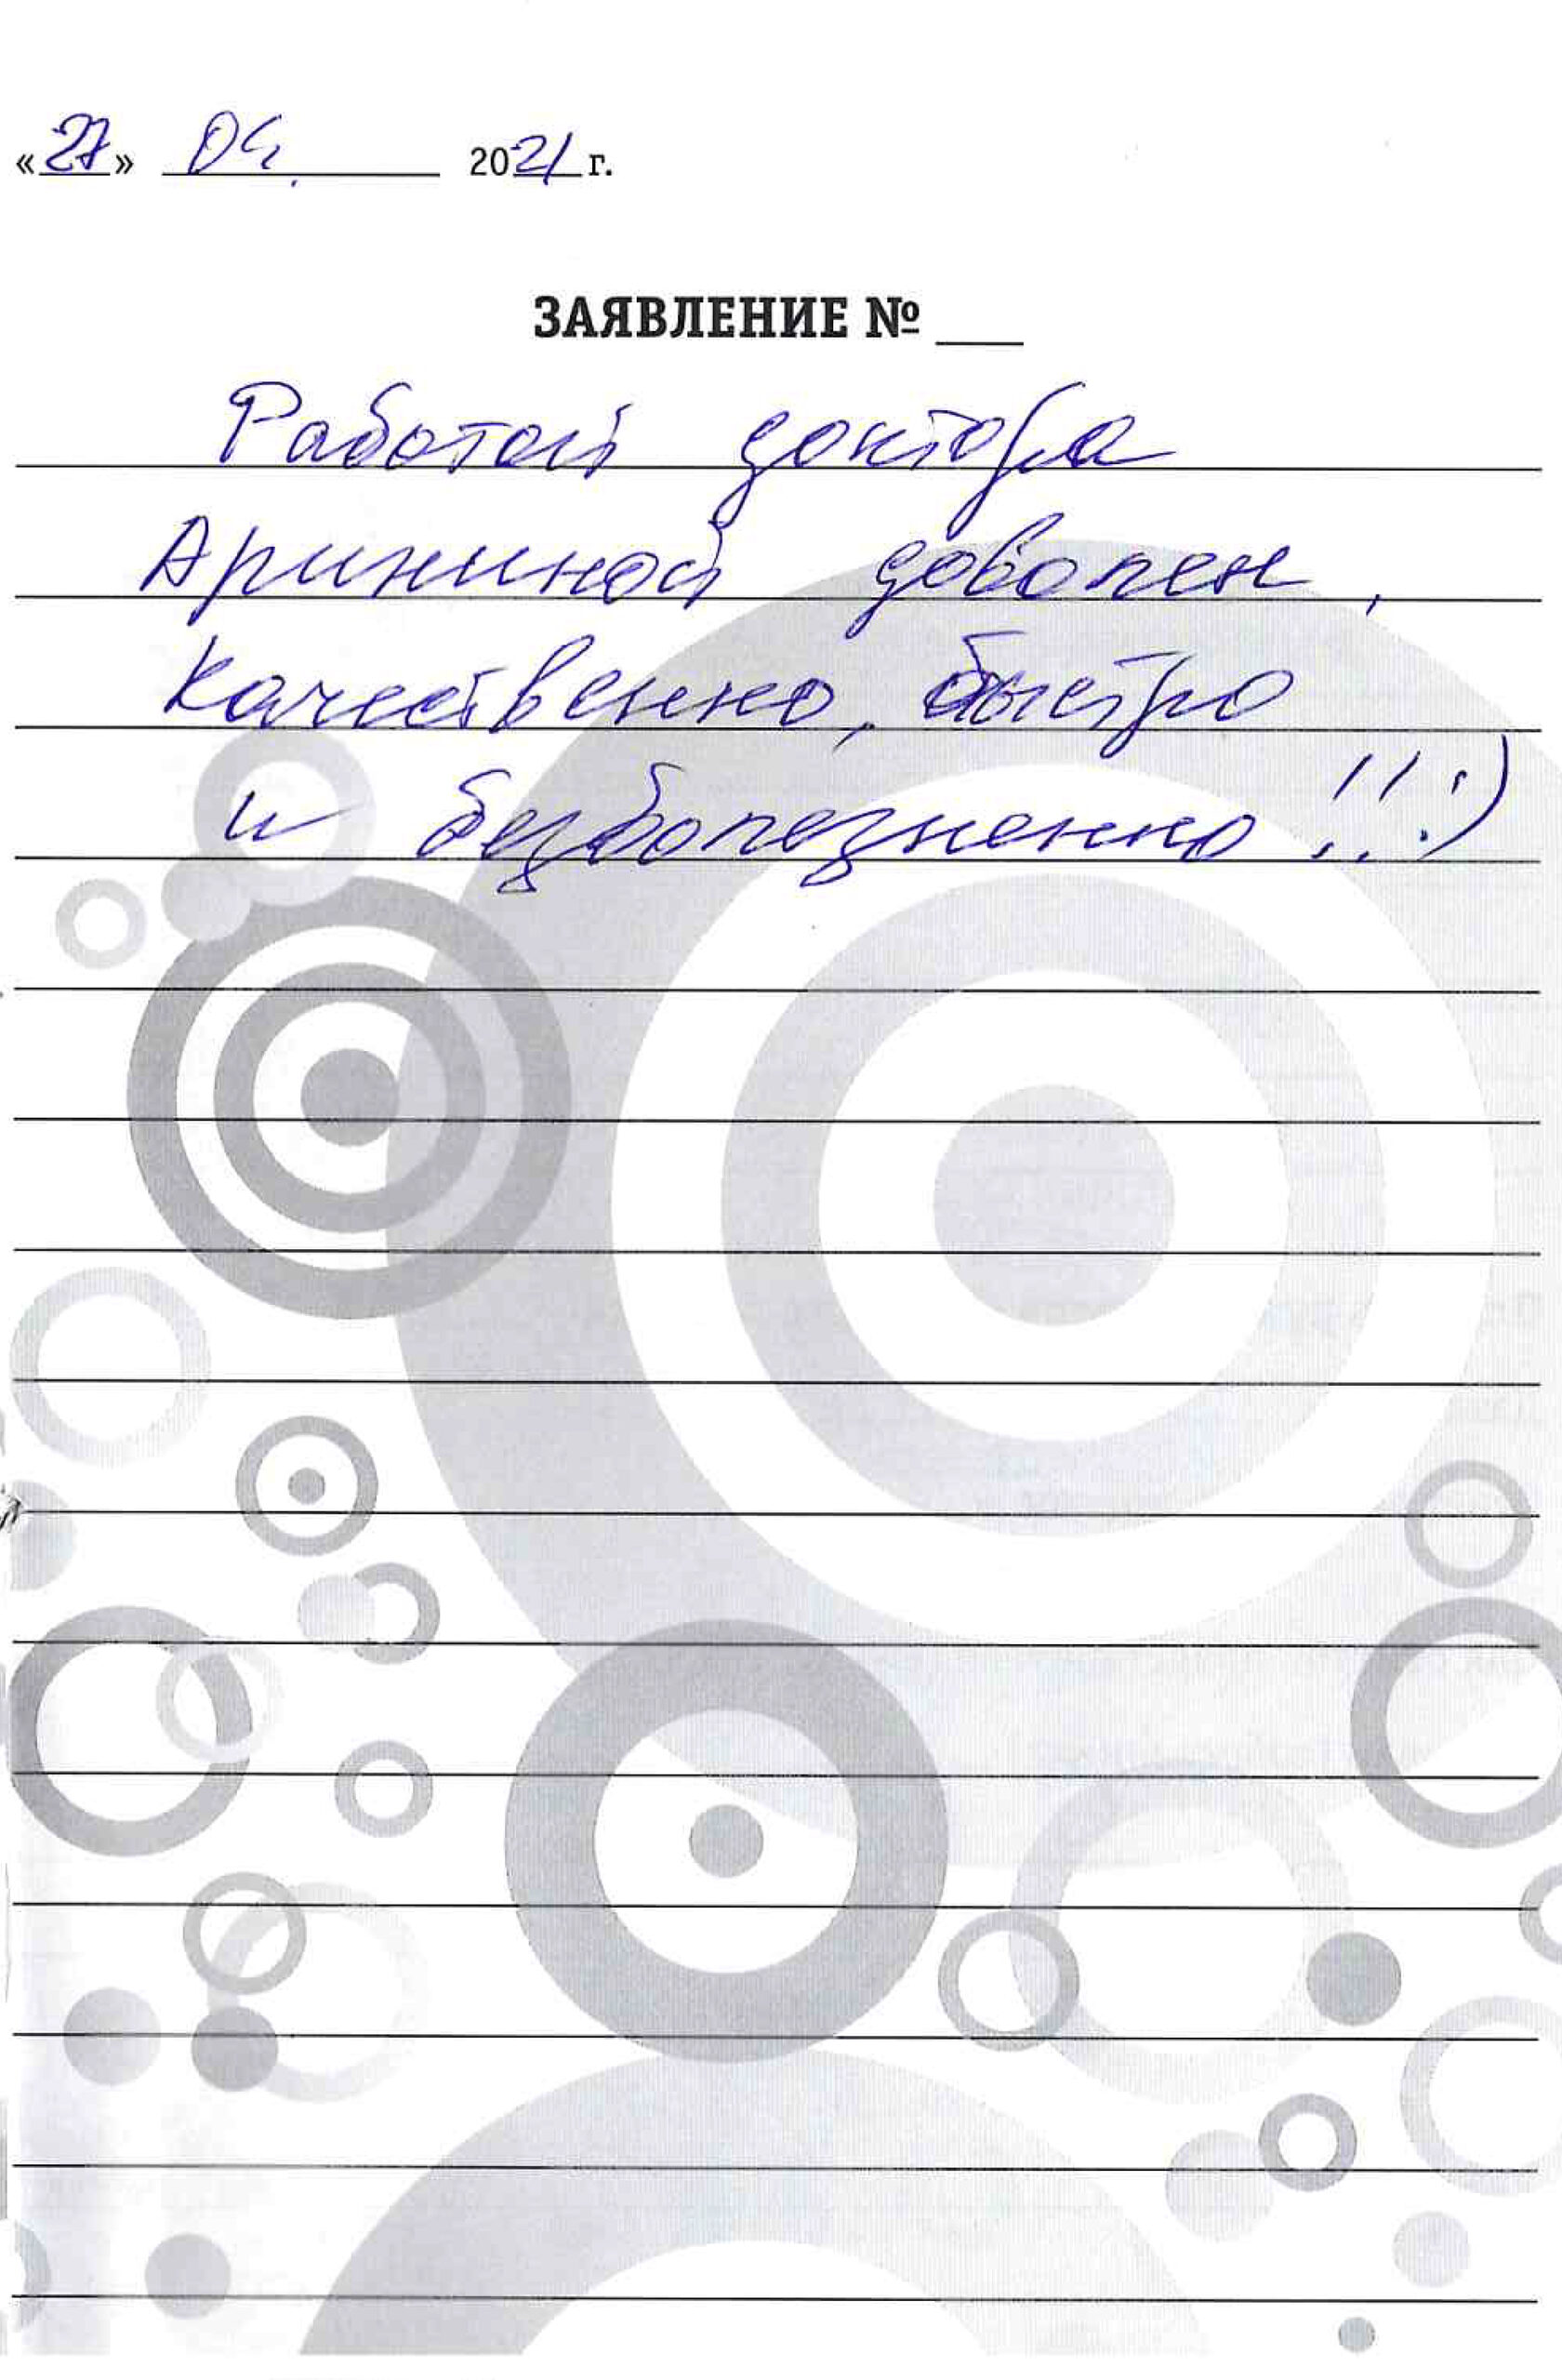 «27» 04. 2021 г.
ЗАЯВЛЕНИЕ № ___
Работой доктора
Арининой доволен,
Качественно, быстро
и безболезненно!!:)